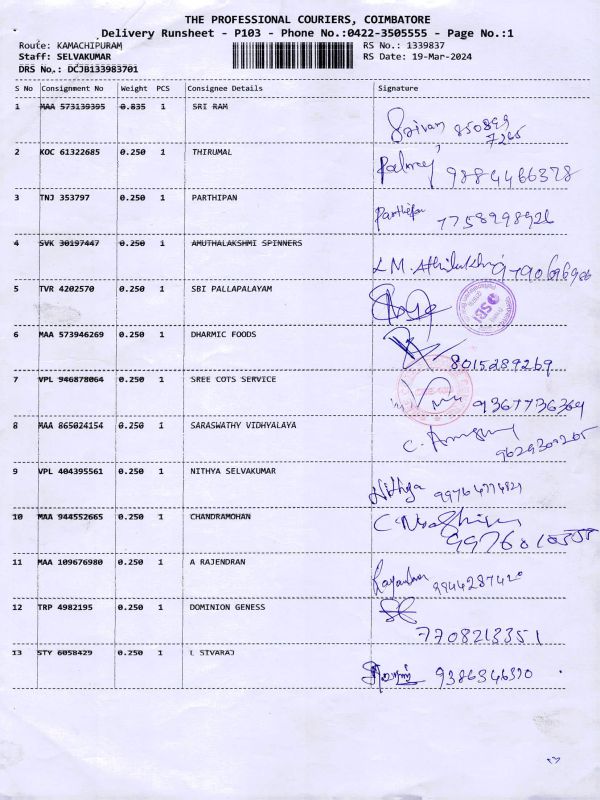 THE PROFESSIONAL COURIERS, COIMBATORE
Delivery Runsheet - P103 - Phone No.:0422-3505555 - Page No.:1
Route: KAMACHIPURAM RS No.: 1339837
Staff: SELVAKUMAR RS Date: 19-Mar-2024
DRS No.: DCJB133983701
S No Consignment No Weight PCS Consignee Details Signature
1 MAA 573139395 0.835 1 SRI RAM
850899
7265
2 KOC 61322685 0.250 1 THIRUMAL
9884466378
3 TNJ 353797 0.250 1 PARTHIPAN
Parthipan 7758998926
4 SVK 30197447 0.250 1 AMUTHALAKSHMI SPINNERS
5 TVR 4202570 0.250 1 SBI PALLAPALAYAM
SBI
6 MAA 573946269 0.250 1 DHARMIC FOODS
8015289269
7 VPL 946878064 0.250 1 SREE COTS SERVICE
9367736369
8 MAA 865024154 0.250 1 SARASWATHY VIDHYALAYA
9629309265
9 VPL 404395561 0.250 1 NITHYA SELVAKUMAR
Nithya
10 MAA 944552665 0.250 1 CHANDRAMOHAN
11 MAA 109676980 0.250 1 A RAJENDRAN
12 TRP 4982195 0.250 1 DOMINION GENESS
7708213351
13 STY 6058429 0.250 1 L SIVARAJ
9386346370